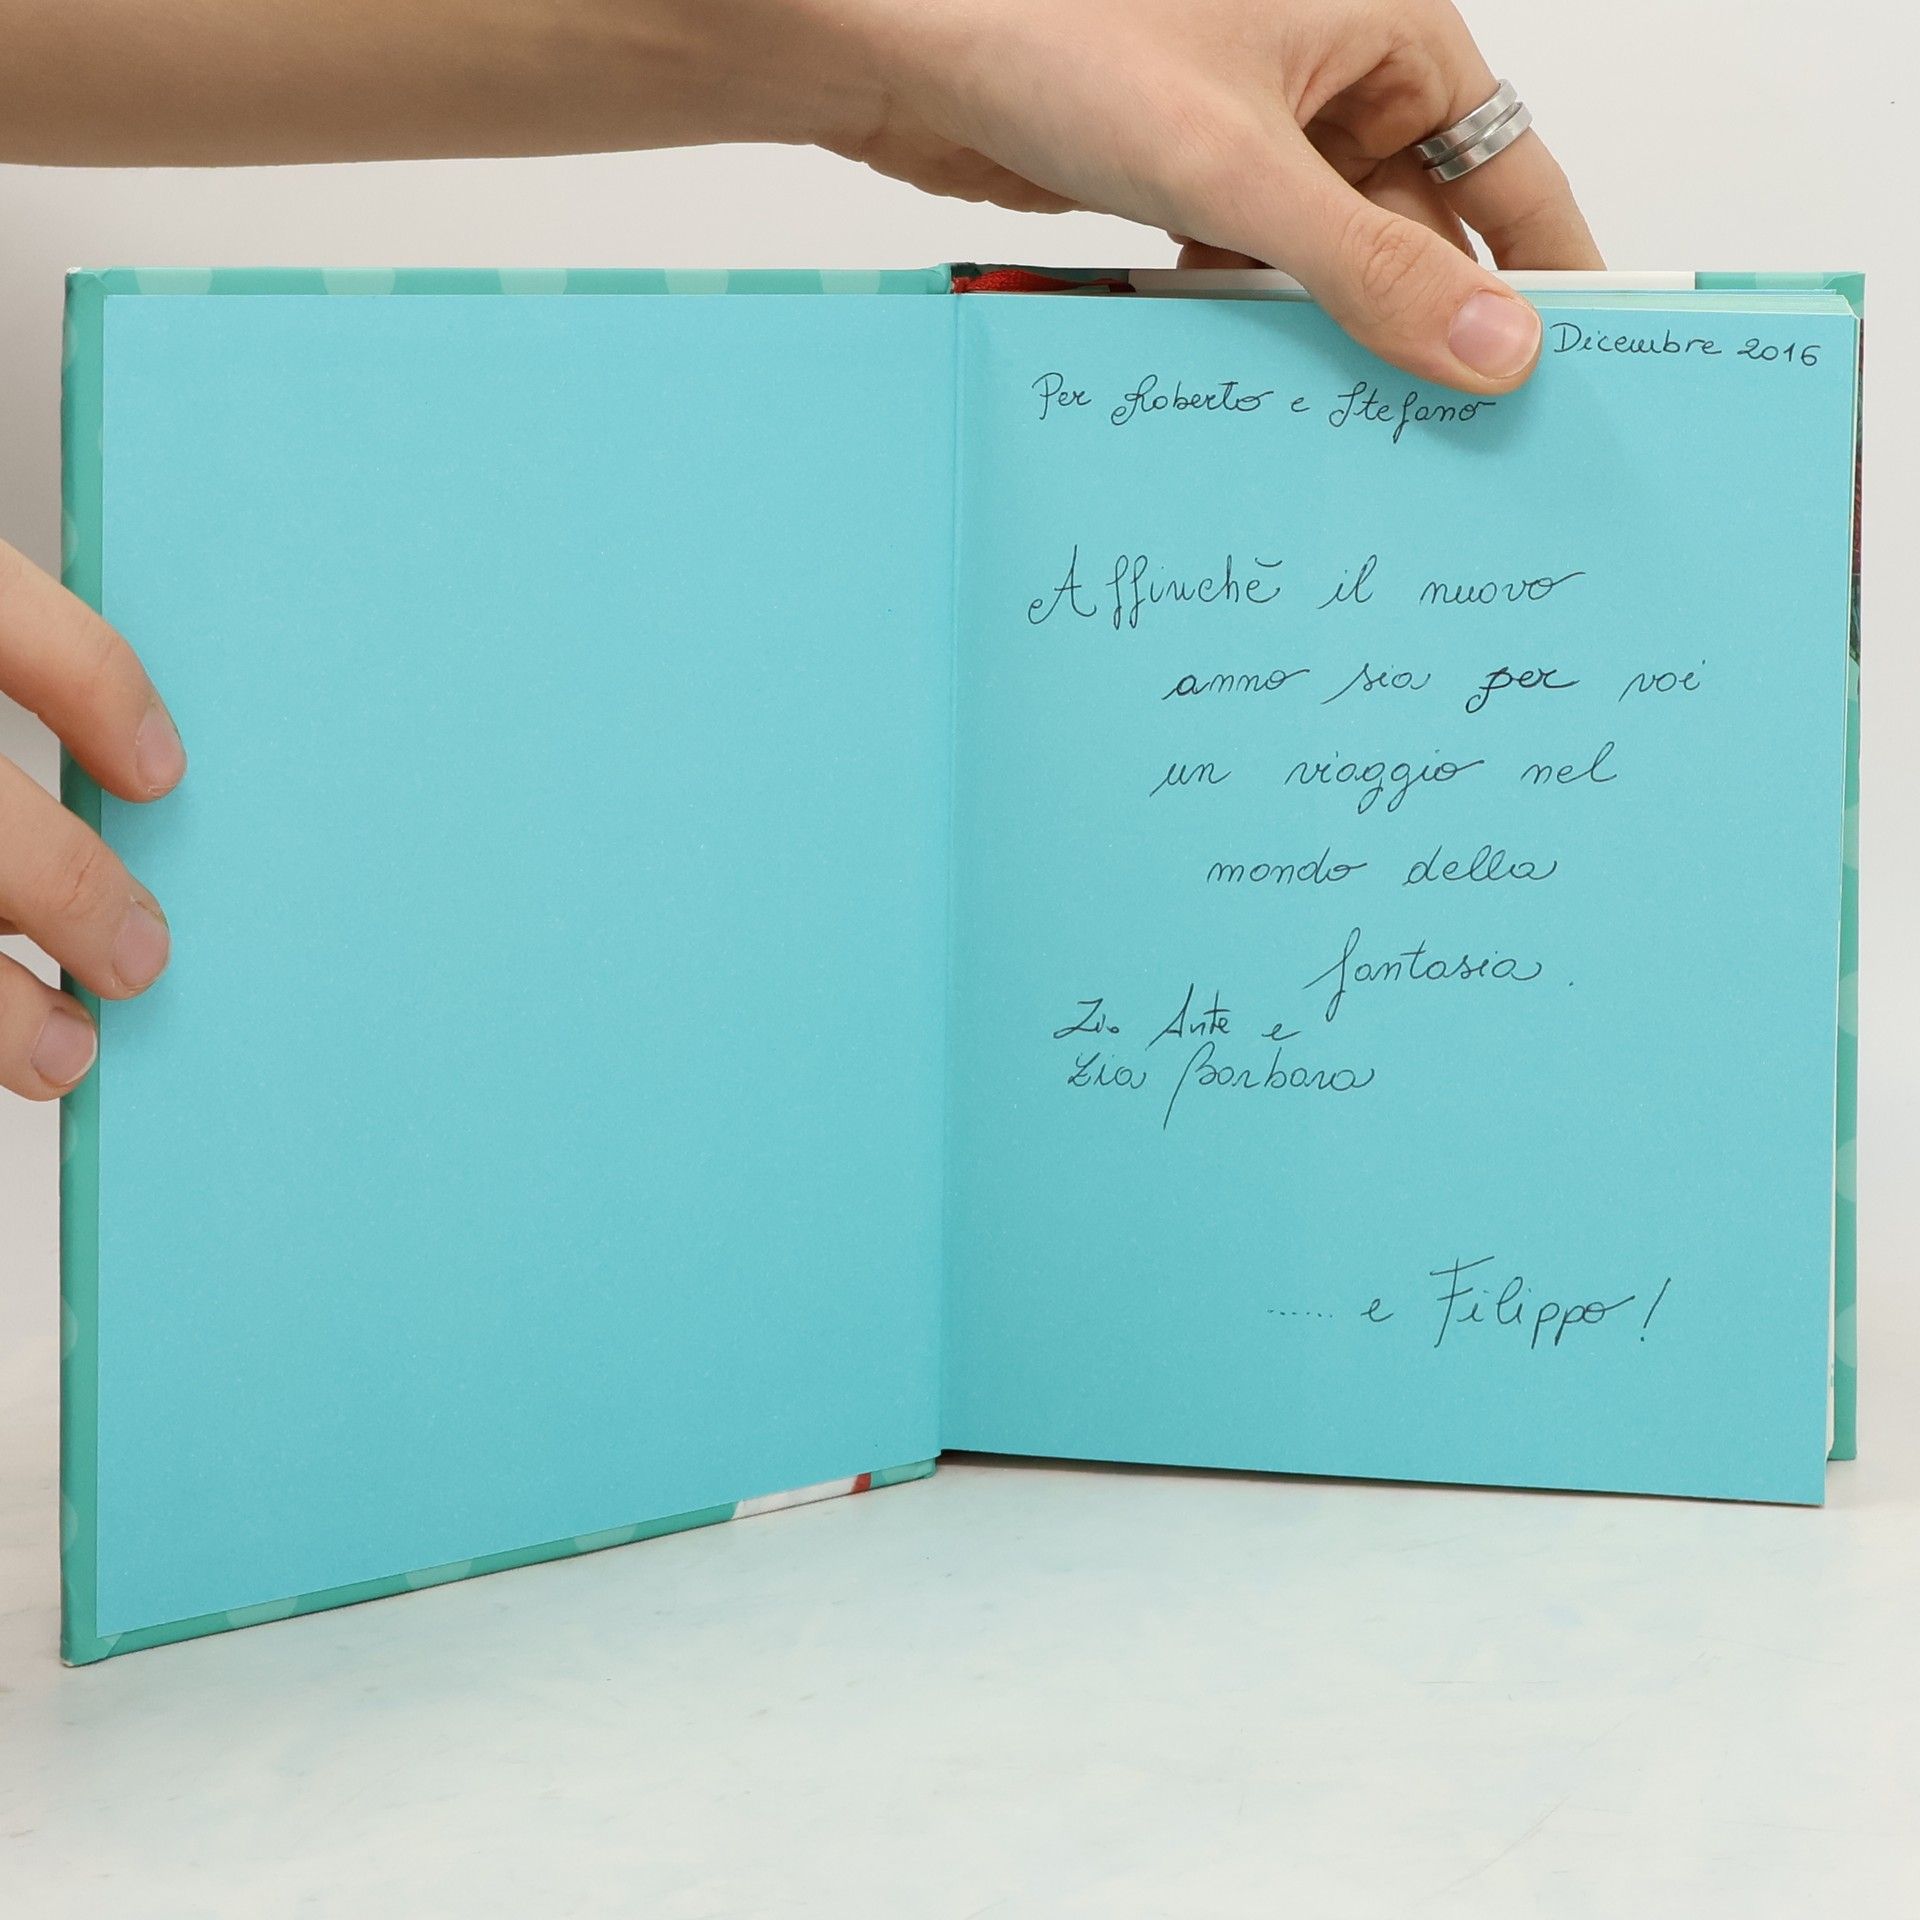 Dicembre 2016
Per Roberto e Stefano
Affinchè il nuovo
anno sia per voi
un viaggio nel
mondo della
fantasia.
Zio Ante e
Zia Barbara
...... e Filippo!